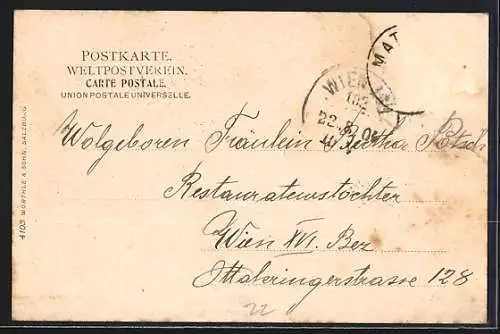 POSTKARTE.
WELTPOSTVEREIN.
CARTE POSTALE.
UNION POSTALE UNIVERSELLE.
MAT
WIEN
22.
Wolgeboren Fräulein Bertha
Restaurateurstochter
Wien XVI. Bez
Ottakringerstrasse 128
22
4103 WÜRTHLE & SOHN, SALZBURG